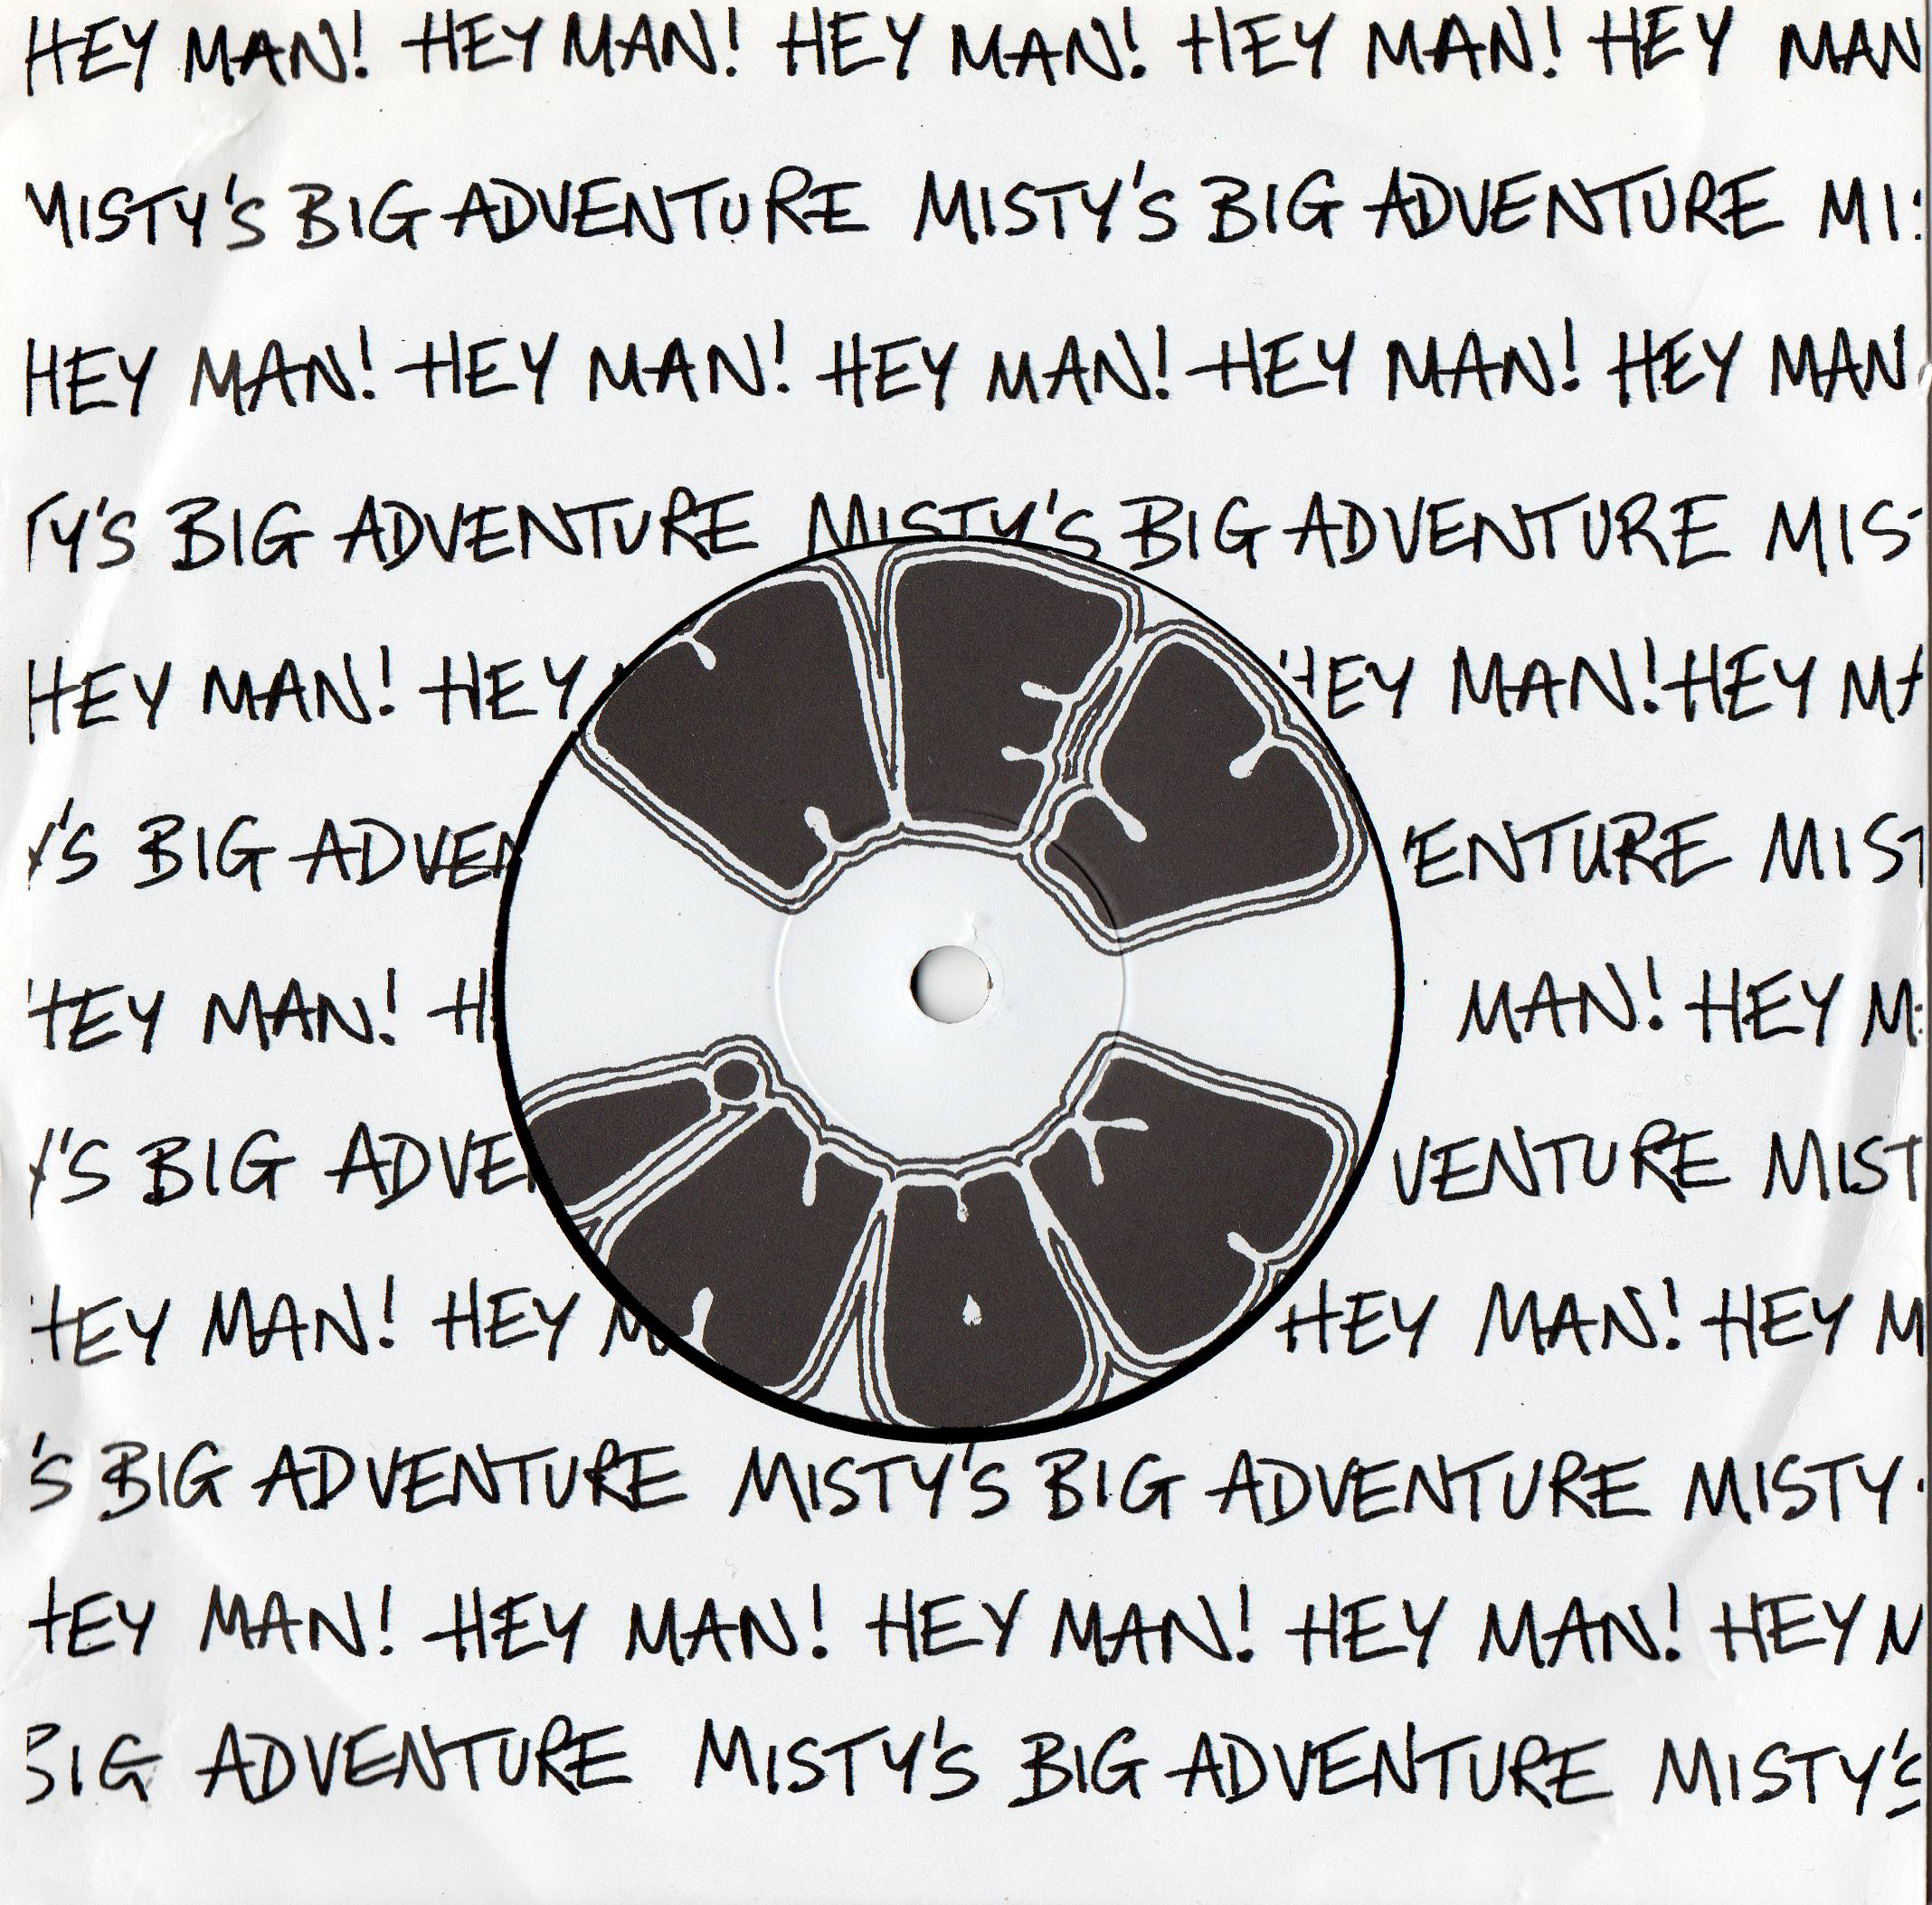 HEY MAN! HEY MAN! HEY MAN! HEY MAN! HEY MAN
MISTY'S BIG ADVENTURE MISTY'S BIG ADVENTURE MI
HEY MAN! HEY MAN! HEY MAN! HEY MAN! HEY MAN
TY'S BIG ADVENTURE MISTY'S BIG ADVENTURE MIS
HEY MAN! HEY HEY MAN! HEY MA
'S BIG ADVEN ENTURE MIST
HEY MAN! H MAN! HEY M
'S BIG ADVE VENTURE MIST
HEY MAN! HEY M HEY MAN! HEY M
'S BIG ADVENTURE MISTY'S BIG ADVENTURE MISTY
HEY MAN! HEY MAN! HEY MAN! HEY MAN! HEY M
BIG ADVENTURE MISTY'S BIG ADVENTURE MISTY'S